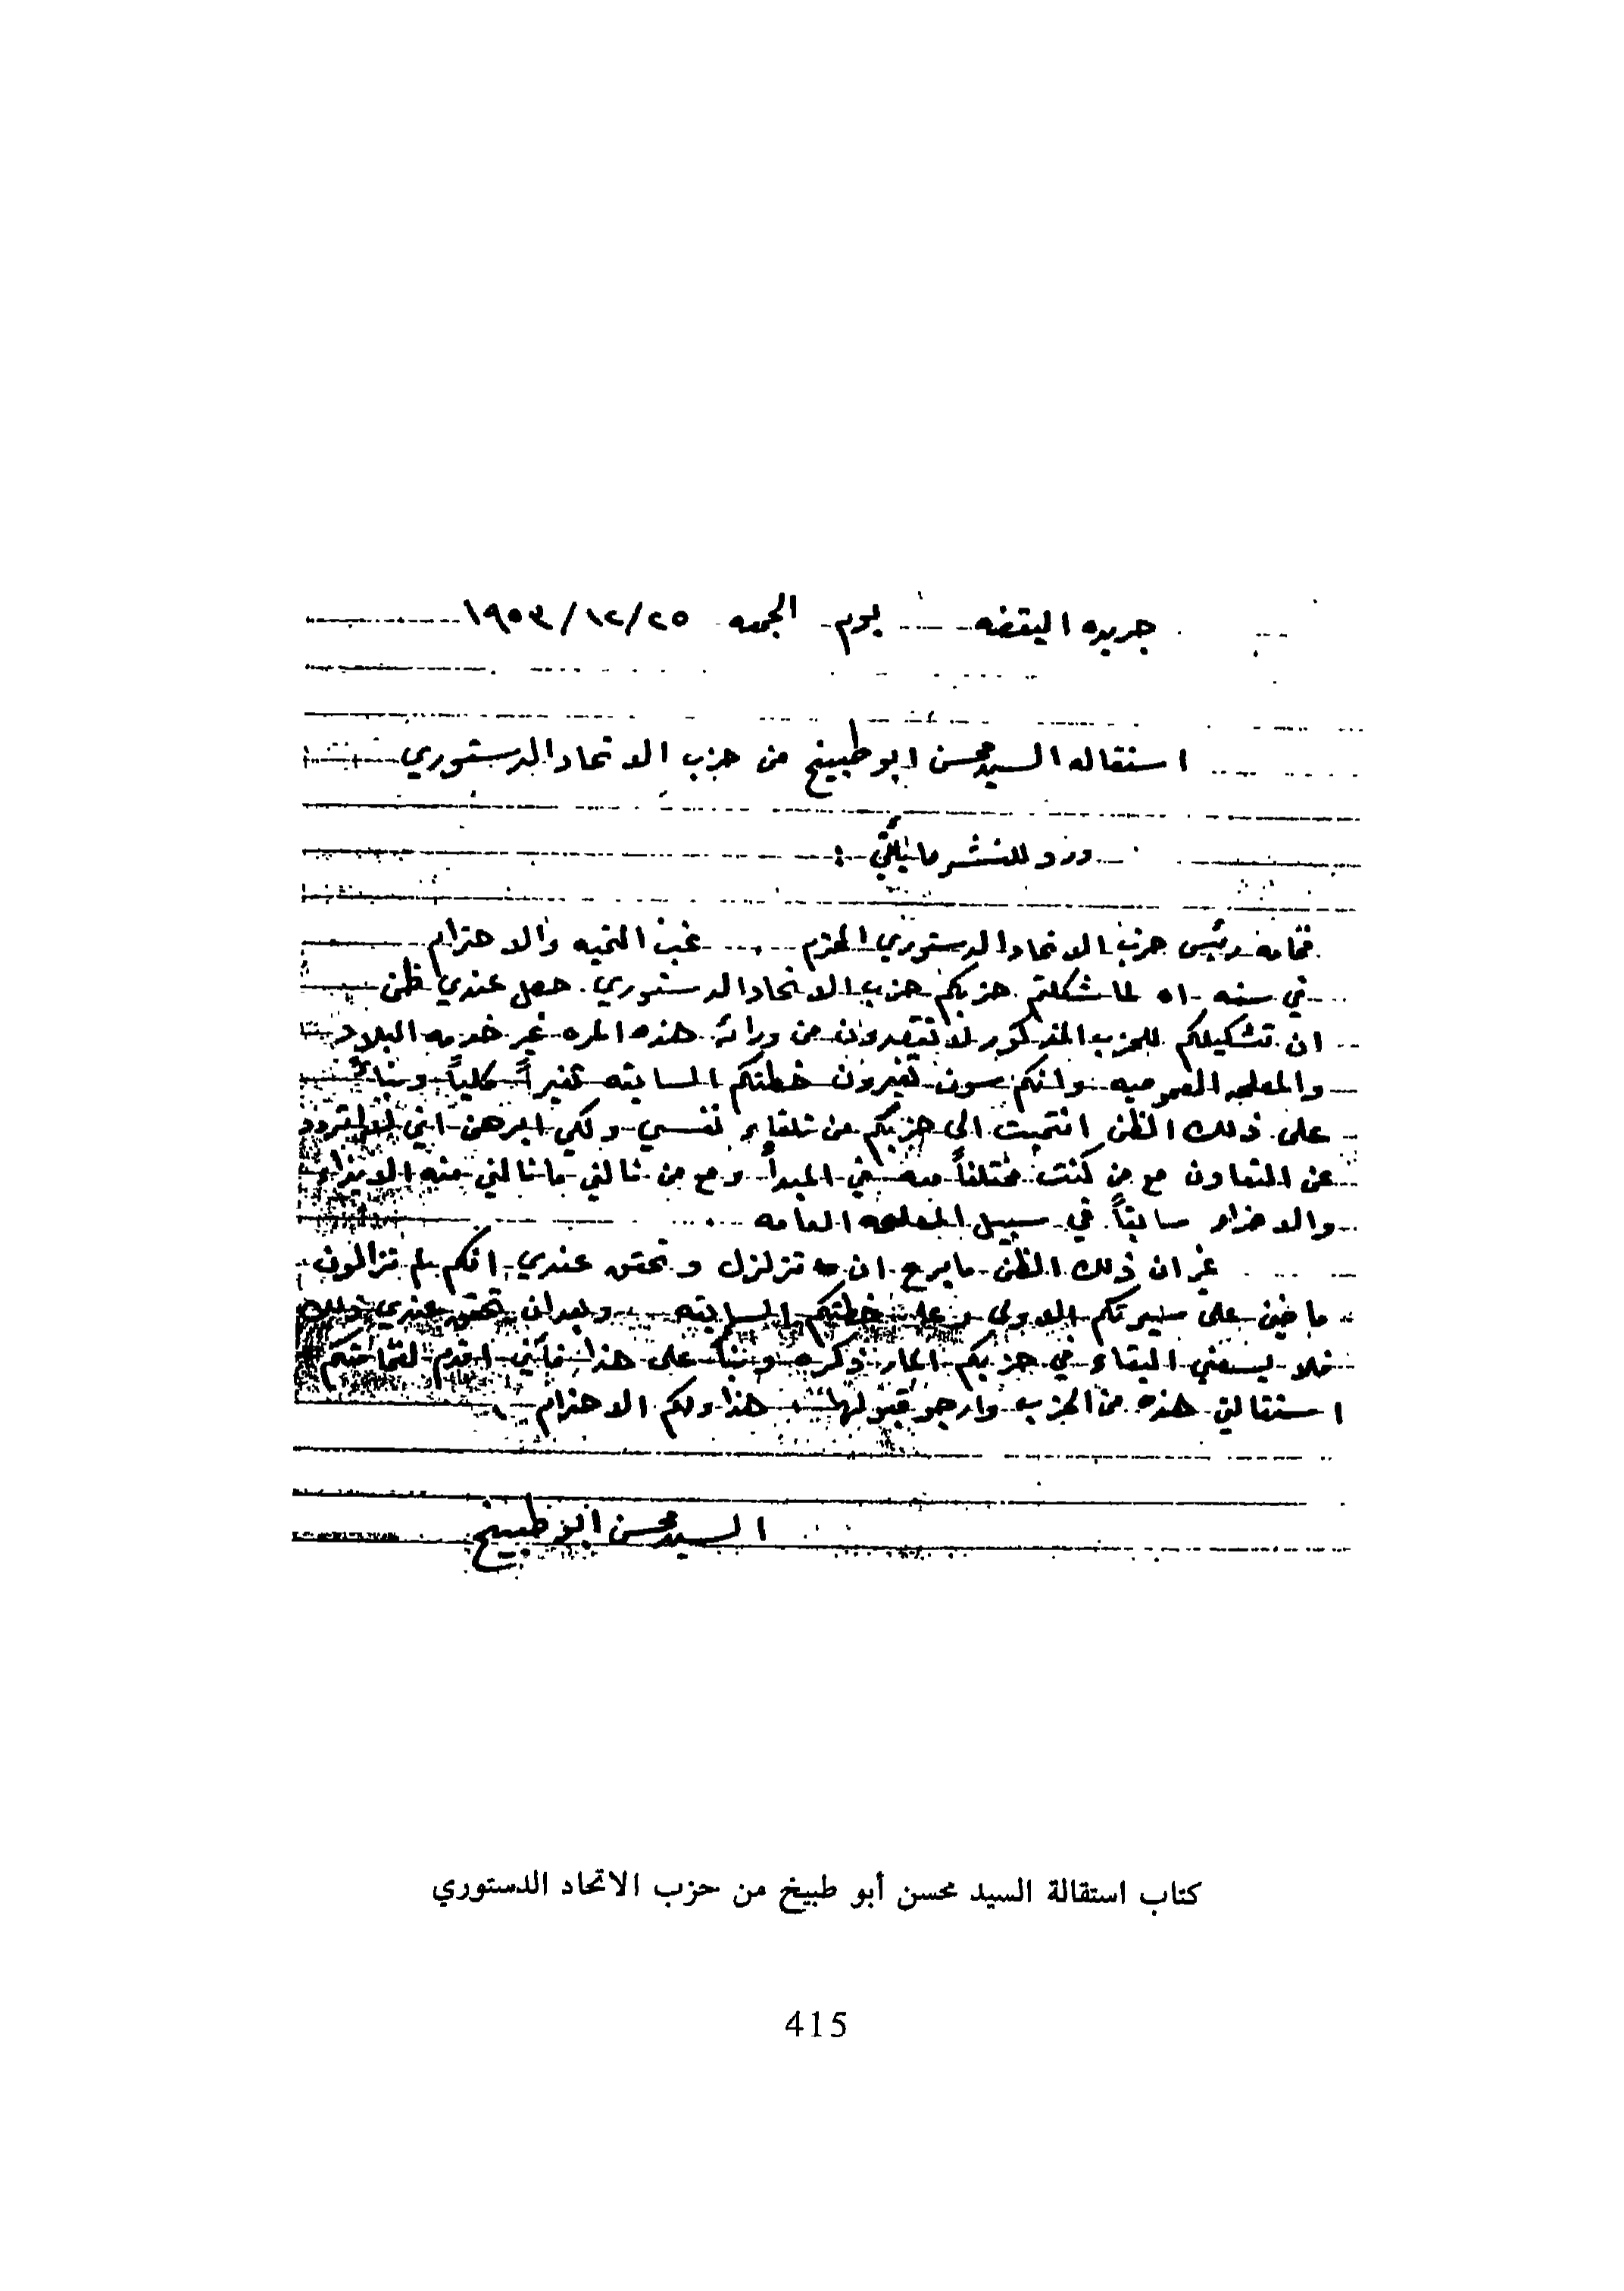 جريده اليقضه يوم الجمعه ٢٥/١٢/١٩٥٣
استقاله السيد محسن ابو طبيخ من حزب الاتحاد الدستوري
ورد للنشر ما يأتي :
فخامة رئيس حزب الاتحاد الدستوري المحترم ... غب التحيه والاحترام
في سنه ٥١ لما شكلتم حزبكم حزب الاتحاد الدستوري . حصل عندي ظن
ان تشكيلكم للحزب المذكور لا تقصدون من ورائه هذه المره غير خدمه البلاد
والمصلحه العموميه وانكم سوف تغيرون خطتكم السابقه تغيراً كلياً وبناءً
على ذلك الظن انتميت الى حزبكم من تلقاء نفسي ولكي ابرهن انني لا اتردد
عن التعاون مع من كنت مختلفاً معه في المبدأ ومع من نالني ما نالني منه الايذاء
والاضرار سابقاً في سبيل المصلحه العامه ...
غير ان ذلك الظن ما برح ان تزلزل وتحقق عندي انكم لم تزالون
ماضين على سيرتكم الاولى وعلى خطتكم السابقه وبعد ان تحقق عندي ذلك
فلا يسعني البقاء في حزبكم المار ذكره وبناء على هذا فأنني اقدم لفخامتكم
استقالتي هذه من الحزب وارجو قبولها هذا ولكم الاحترام
السيد محسن ابو طبيخ
كتاب استقالة السيد محسن أبو طبيخ من حزب الاتحاد الدستوري
415